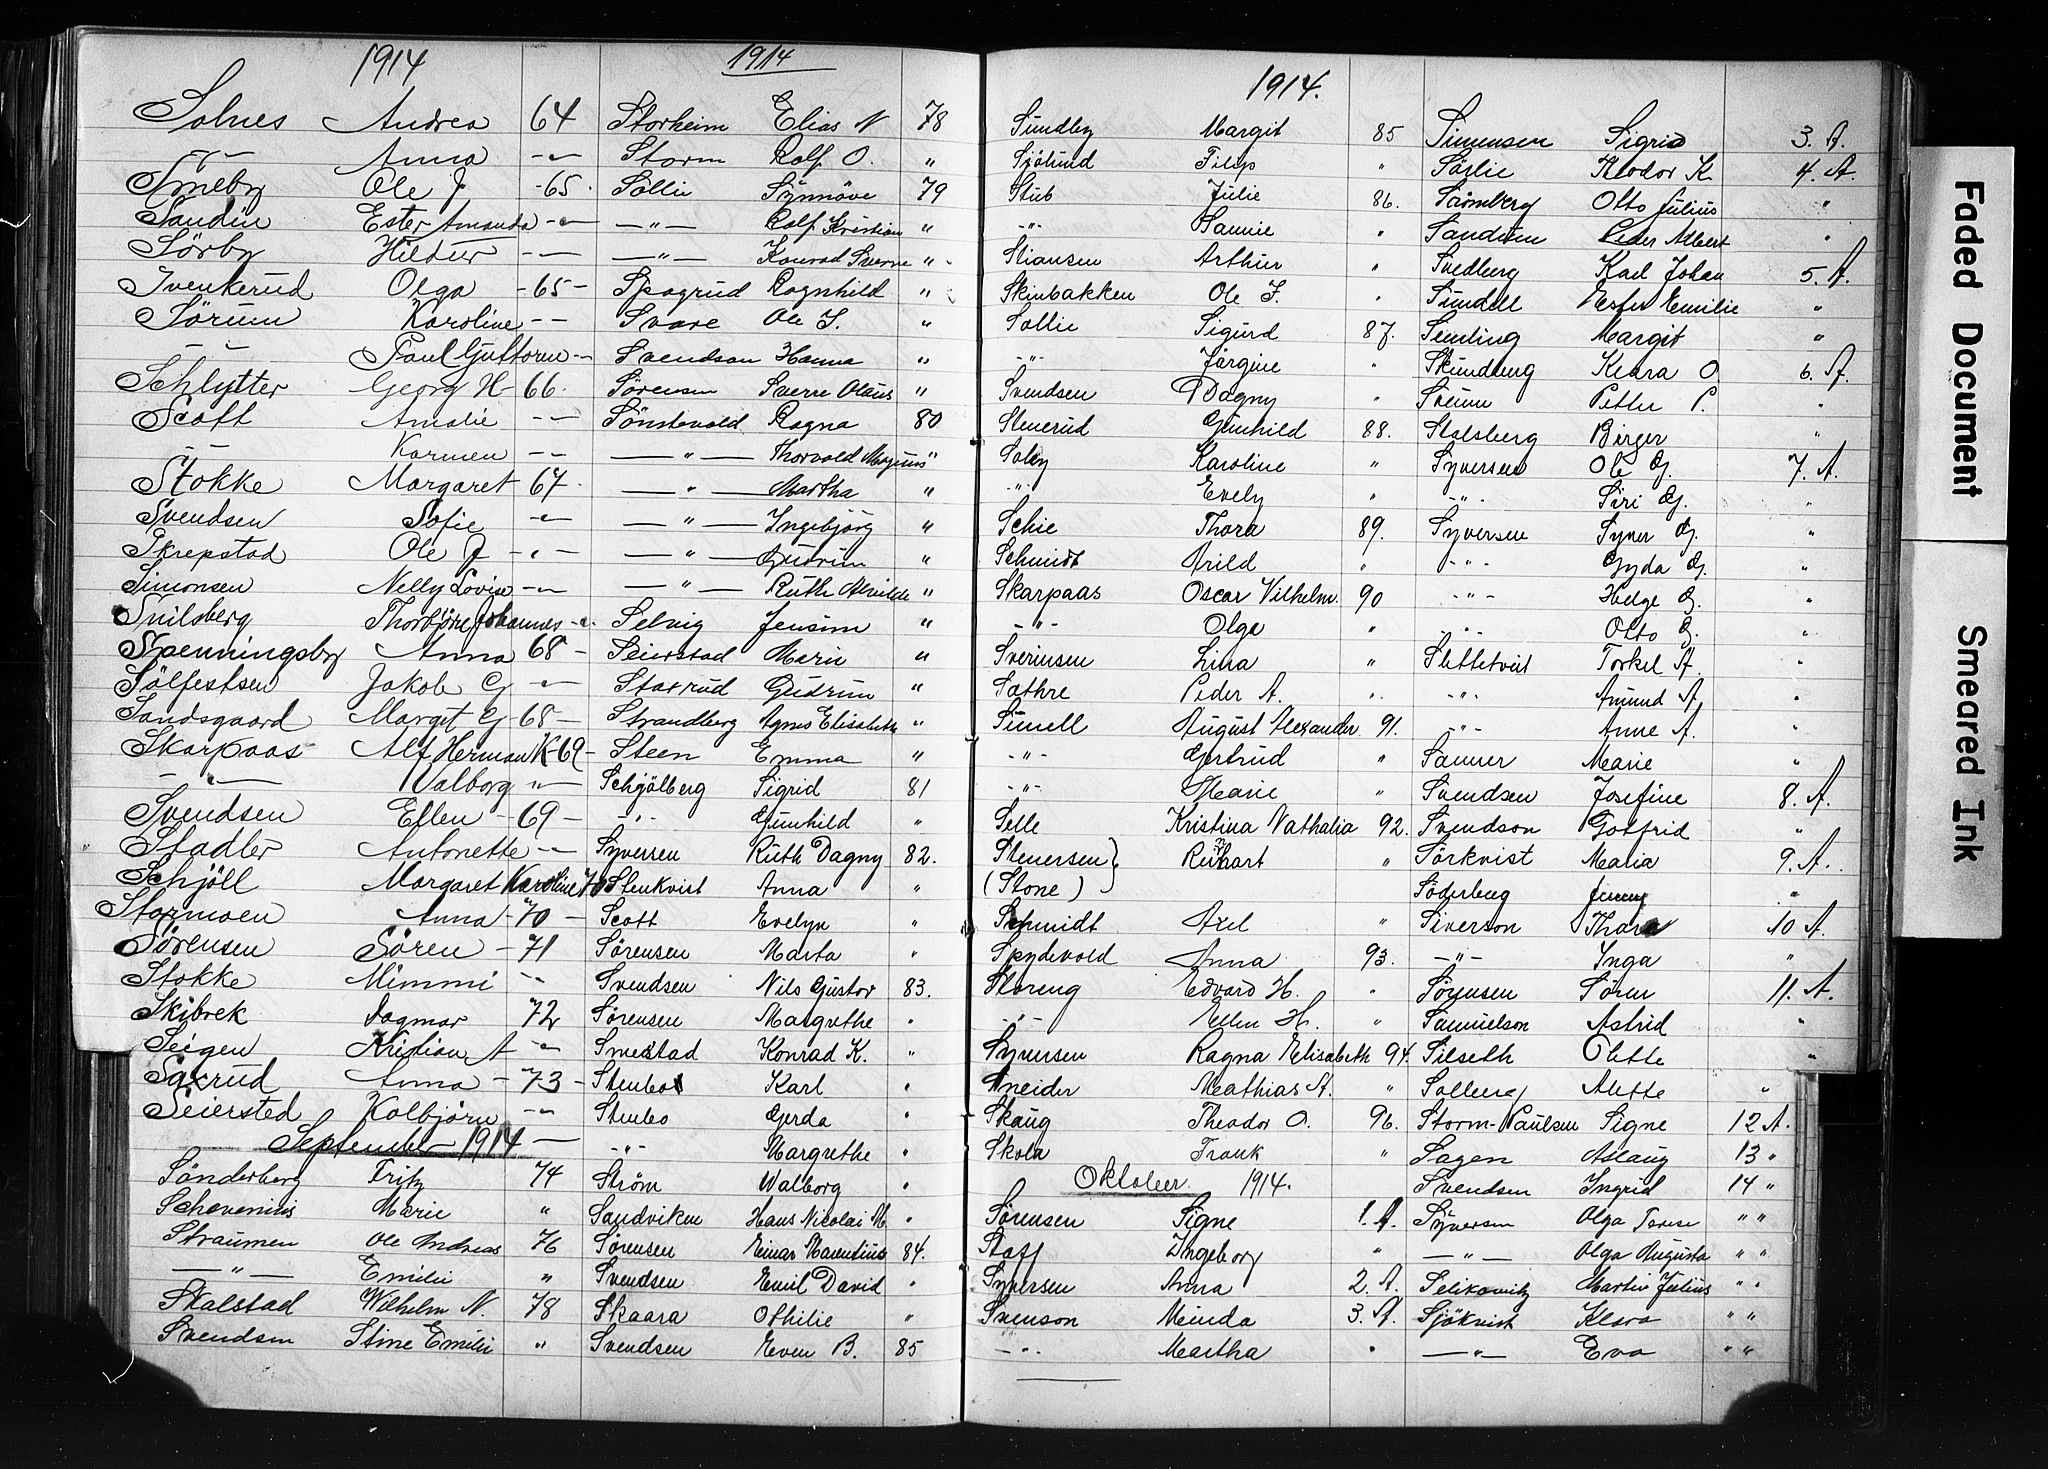 1914
Solnes Andrea 64
-〃- Anna -〃-
Smeby Ole J -65-
Sandin Ester Amanda -〃-
Sörby Hildur -〃-
Svenkerud Olga -65-
Sørum Karoline -〃-
-〃- Paul Guttorm -〃-
Schlytter Georg H -66.
Scott Amalie -〃-
-〃- Karmen -〃-
Stokke Margaret 67.
Svendsen Sofie -〃-
Skrepstad Ole J -〃-
Simonsen Nelly Lovise -〃-
Snilsberg Thorbjörn Johannes -〃-
Spenningsby Anna 68 -
Sølfestsen Jakob G -〃-
Sandsgaard Marget G -68-
Skarpaas Alf Herman K -69-
-〃- Valborg -〃-
Svendsen Ellen -69-
Stadler Antonette -〃-
Schjöll Margaret Karoline 70
Stormoen Anna -70-
Sørensen Sören -71
Stokke Mimmi -〃-
Skibrek Dagmar 72
Seigen Kristian A -〃-
Saxrud Anna -73-
Seiersted Kolbjörn -〃-
September 1914
Sönderberg Fritz 74
Schevenius Marie 〃
Straumen Ole Andreas 76
-〃- Emilie 〃
Skalstad Wilhelm N. 78
Svendsen Stine Emilie 〃
1914
Storheim Elias N 78
Storm Rolf O. 〃
Sollie Synnöve 79
-〃- Rolf Kristian 〃
-〃- Konrad Sverre 〃
Spagrud Ragnhild 〃
Svare Ole S. 〃
Svendson Hanna 〃
Sørensen Sverre Olaus 〃
Sönstevold Ragna 80
-〃- Thorvald Magnus 〃
-〃- Martha 〃
-〃- Ingebjörg 〃
-〃- Gudrun 〃
-〃- Ruth Alvilde 〃
Selvig Jensine 〃
Seierstad Marie 〃
Staxrud Gudrun 〃
Strandberg Agnes Elisabeth 〃
Steen Emma 〃
Schjölberg Sigrid 81
-〃- Gunhild 〃
Syversen Ruth Dagny 82.
Stenkvist Anna 〃
Scott Evelyn 〃
Sørensen Marta 〃
Svendsen Nils Gustav 83.
Sørensen Margrethe 〃
Smestad Konrad K. 〃
Stenbo Karl 〃
Stenbo Gerda 〃
-〃- Margrethe 〃
Strøm Walborg 〃
Sandviken Hans Nicolai M. 〃
Sørensen Einar Marentius 84.
Svendsen Emil David 〃
Skaara Othilie 〃
Svendsen Even B. 85
1914.
Sundby Margit 85
Sjölund Filip 〃
Stub Julie 86.
-〃- Hannie 〃
Stiansen Arthur 〃
Skinbakken Ole J. 〃
Sollie Sigurd 87.
-〃- Jörgine 〃
Svendsen Dagny 〃
Stenerud Gunhild 88.
Solby Karoline 〃
-〃- Evely 〃
Schie Thora 89.
Schmidt Arild 〃
Skarpaas Oscar Vilhelm 90
-〃- Olga 〃
Sverinsen Lina 〃
Sæthre Peder A. 〃
Sunell August Alexander 91.
-〃- Gertrud 〃
-〃- Marie 〃
Selle Kristina Nathalia 92.
Stenersen } Reinhart 〃
(Stone)
Schmidt Axel 〃
Spydevold Anna 93.
Storeng Edvard H. 〃
-〃- Ellen H. 〃
Syversen Ragna Elisabeth 94.
Sneider Mathias A. 〃
Skaug Theodor O. 96.
Skola Frank 〃
Oktober 1914.
Sørensen Signe 1. A.
Staff Ingeborg 〃
Syversen Anna 2. A.
Svenson Minda 3. A.
-〃- Martha 〃
Simensen Sigrid 3. A.
Sörlie Theodor K. 4. A.
Strömberg Otto Julius 〃
Sandum Peder Albert 〃
Svedberg Karl Johan 5. A.
Sundell Ester Emilie 〃
Semling Margit 〃
Skundberg Klara O 6. A.
Sveum Petter P. 〃
Stalsberg Birger 〃
Syversen Ole G. 7. A.
-〃- Siri G. 〃
Syversen Syner G. 〃
-〃- Gyda G. 〃
-〃- Helge G. 〃
-〃- Otto G. 〃
Slettetveit Torkel A. 〃
-〃- Amund A. 〃
-〃- Anne A. 〃
Sanner Marie 〃
Svendsen Josefine 8. A.
Svendson Gotfrid 〃
Sörkvist Maria 9. A.
Söderberg Jenny 〃
Siverson Thora 10 A.
-〃- Inga 〃
Sørensen Sören 11. A.
Samuelson Astrid 〃
Silseth Olette 〃
Solberg Alette 〃
Storm-Paulsen Signe 12 A.
Sagen Aslaug 13 〃
Svendsen Ingrid 14 〃
Syversen Olga Terese 〃 〃
-〃- Olga Augusta 〃 〃
Selikovitz Martin Julius 〃 〃
Sjökvist Klara 〃 〃
-〃- Eva 〃 〃
Faded Document
Smeared Ink